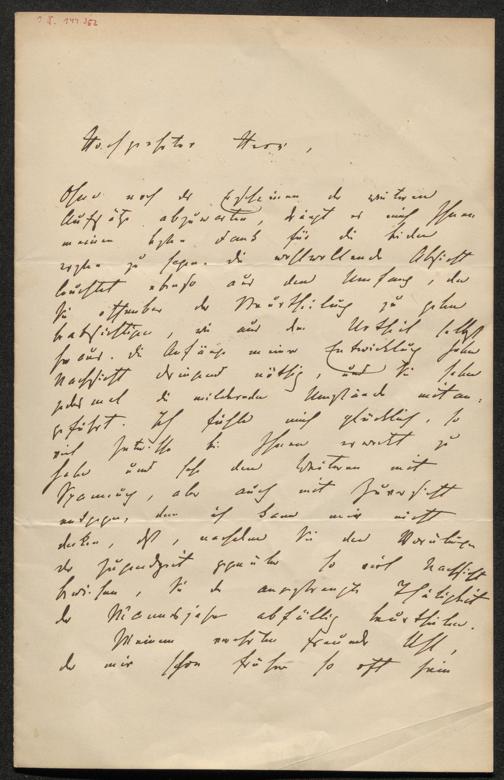 Hochgeehrter Herr,
Ohne noch das Erscheinen der weiteren
Aufsätze abzuwarten, drängt es mich Ihnen
meinen besten Dank für die beiden
ersten zu sagen. Die wohlwollende Absicht
leuchtet ebenso aus dem Umfang, den
Sie offenbar der Beurtheilung zu geben
beabsichtigen, wie aus dem Urtheil selbst
heraus. Die Anfänge meiner Entwicklung haben
Nachsicht dringend nöthig, und Sie haben
jedesmal die mildernden Umstände mit an-
geführt. Ich fühle mich glücklich, so
viel Interesse bei Ihnen erweckt zu
haben und sehe dem Weiteren mit
Spannung, aber auch mit Zuversicht
entgegen, denn ich kann mir nicht
denken, daß, nachdem Sie den
der Jugendzeit gegenüber so viel Nachsicht
bewiesen, Sie die angestrengte Thätigkeit
der Mannesjahre abfällig beurtheilen.
Meinem verehrten Freunde
der mir schon früher so oft sein